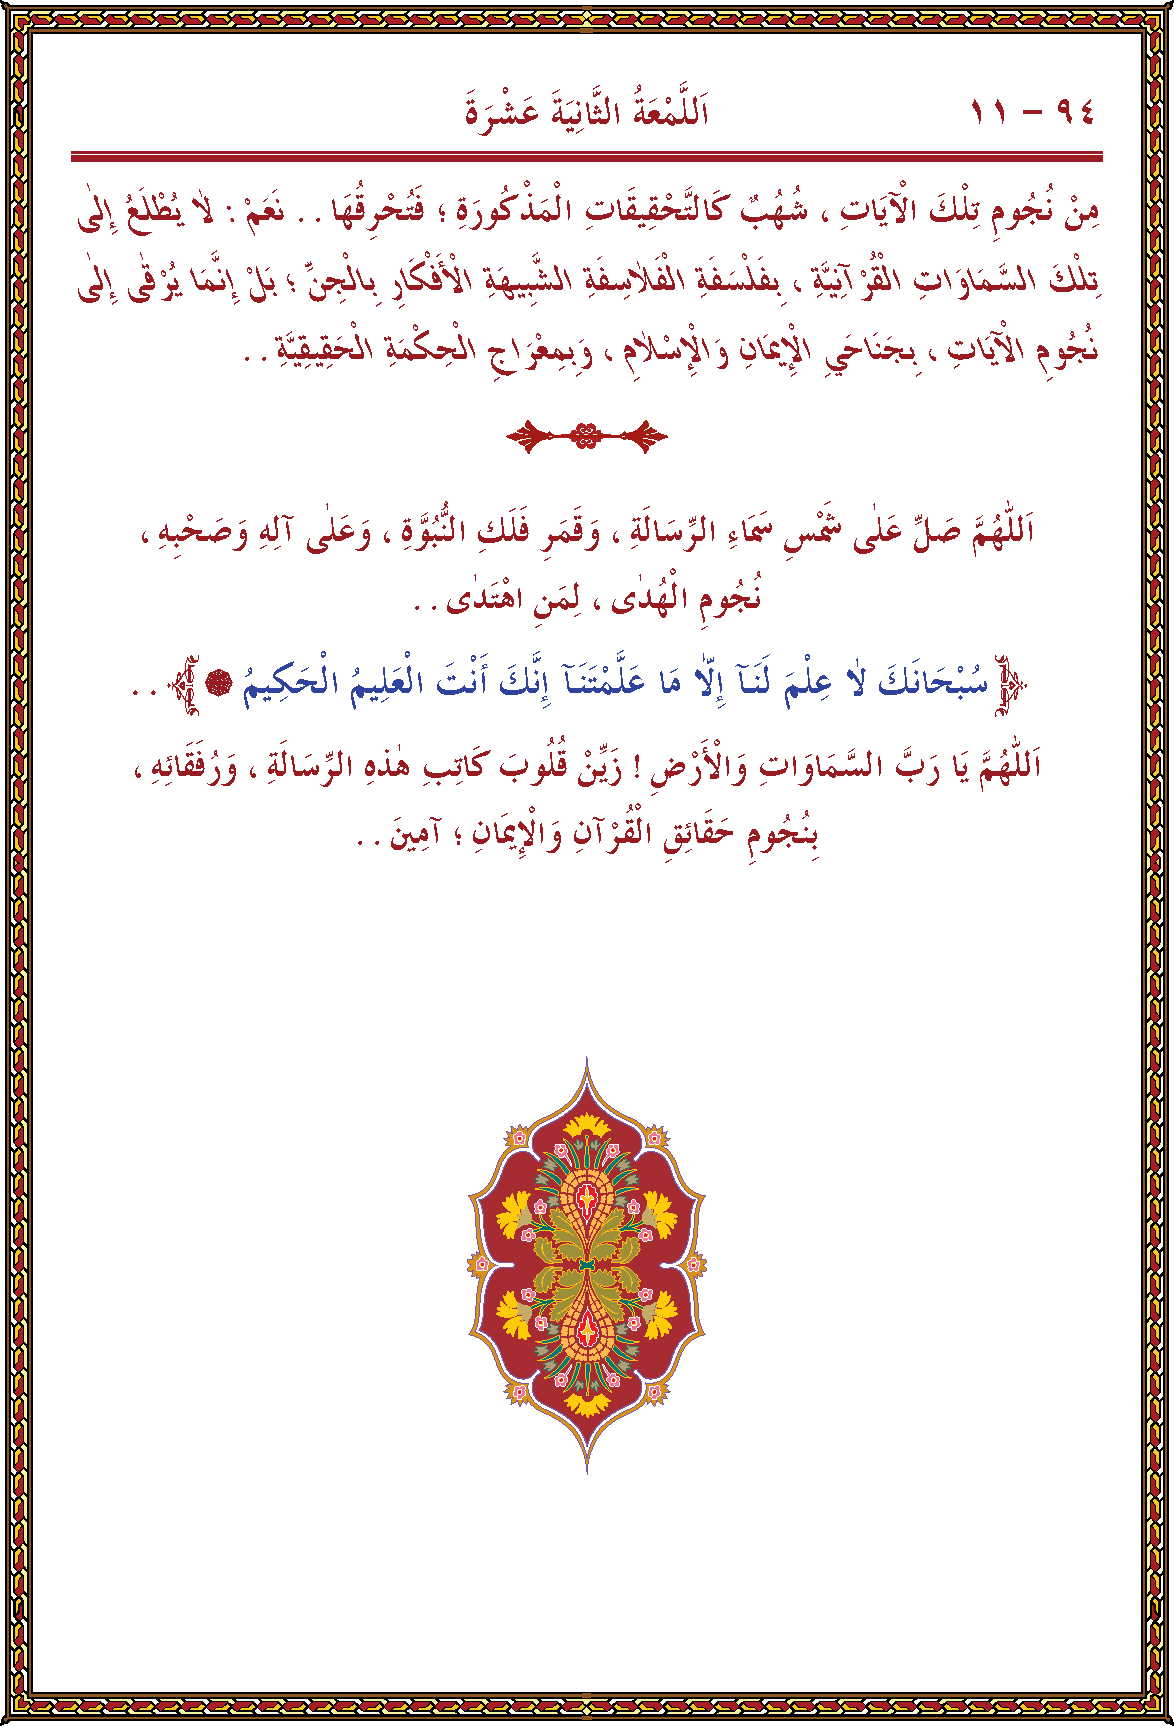 ٩٤ – ١١ اَللَّمْعَةُ الثَّانِيَةَ عَشْرَةَ
مِنْ نُجُومِ تِلْكَ الْآيَاتِ ، شُهُبٌ كَالتَّحْقِيقَاتِ الْمَذْكُورَةِ ؛ فَتُحْرِقُهَا . . نَعَمْ : لَا يُطْلَعُ إِلٰى
تِلْكَ السَّمَاوَاتِ الْقُرْآنِيَّةِ ، بِفَلْسَفَةِ الْفَلَاسِفَةِ الشَّبِيهَةِ الْأَفْكَارِ بِالْجِنِّ ؛ بَلْ إِنَّمَا يُرْقٰى إِلٰى
نُجُومِ الْآيَاتِ ، بِجَنَاحَيِ الْإِيمَانِ وَالْإِسْلَامِ ، وَبِمِعْرَاجِ الْحِكْمَةِ الْحَقِيقِيَّةِ . .
اَللّٰهُمَّ صَلِّ عَلٰى شَمْسِ سَمَاءِ الرِّسَالَةِ ، وَقَمَرِ فَلَكِ النُّبُوَّةِ ، وَعَلٰى آلِهِ وَصَحْبِهِ ،
نُجُومِ الْهُدٰى ، لِمَنِ اهْتَدٰى . .
﴿سُبْحَانَكَ لَا عِلْمَ لَنَآ إِلَّا مَا عَلَّمْتَنَآ إِنَّكَ أَنْتَ الْعَلِيمُ الْحَكِيمُ﴾ . .
اَللّٰهُمَّ يَا رَبَّ السَّمَاوَاتِ وَالْأَرْضِ ! زَيِّنْ قُلُوبَ كَاتِبِ هٰذِهِ الرِّسَالَةِ ، وَرُفَقَائِهِ ،
بِنُجُومِ حَقَائِقِ الْقُرْآنِ وَالْإِيمَانِ ؛ آمِينَ . .